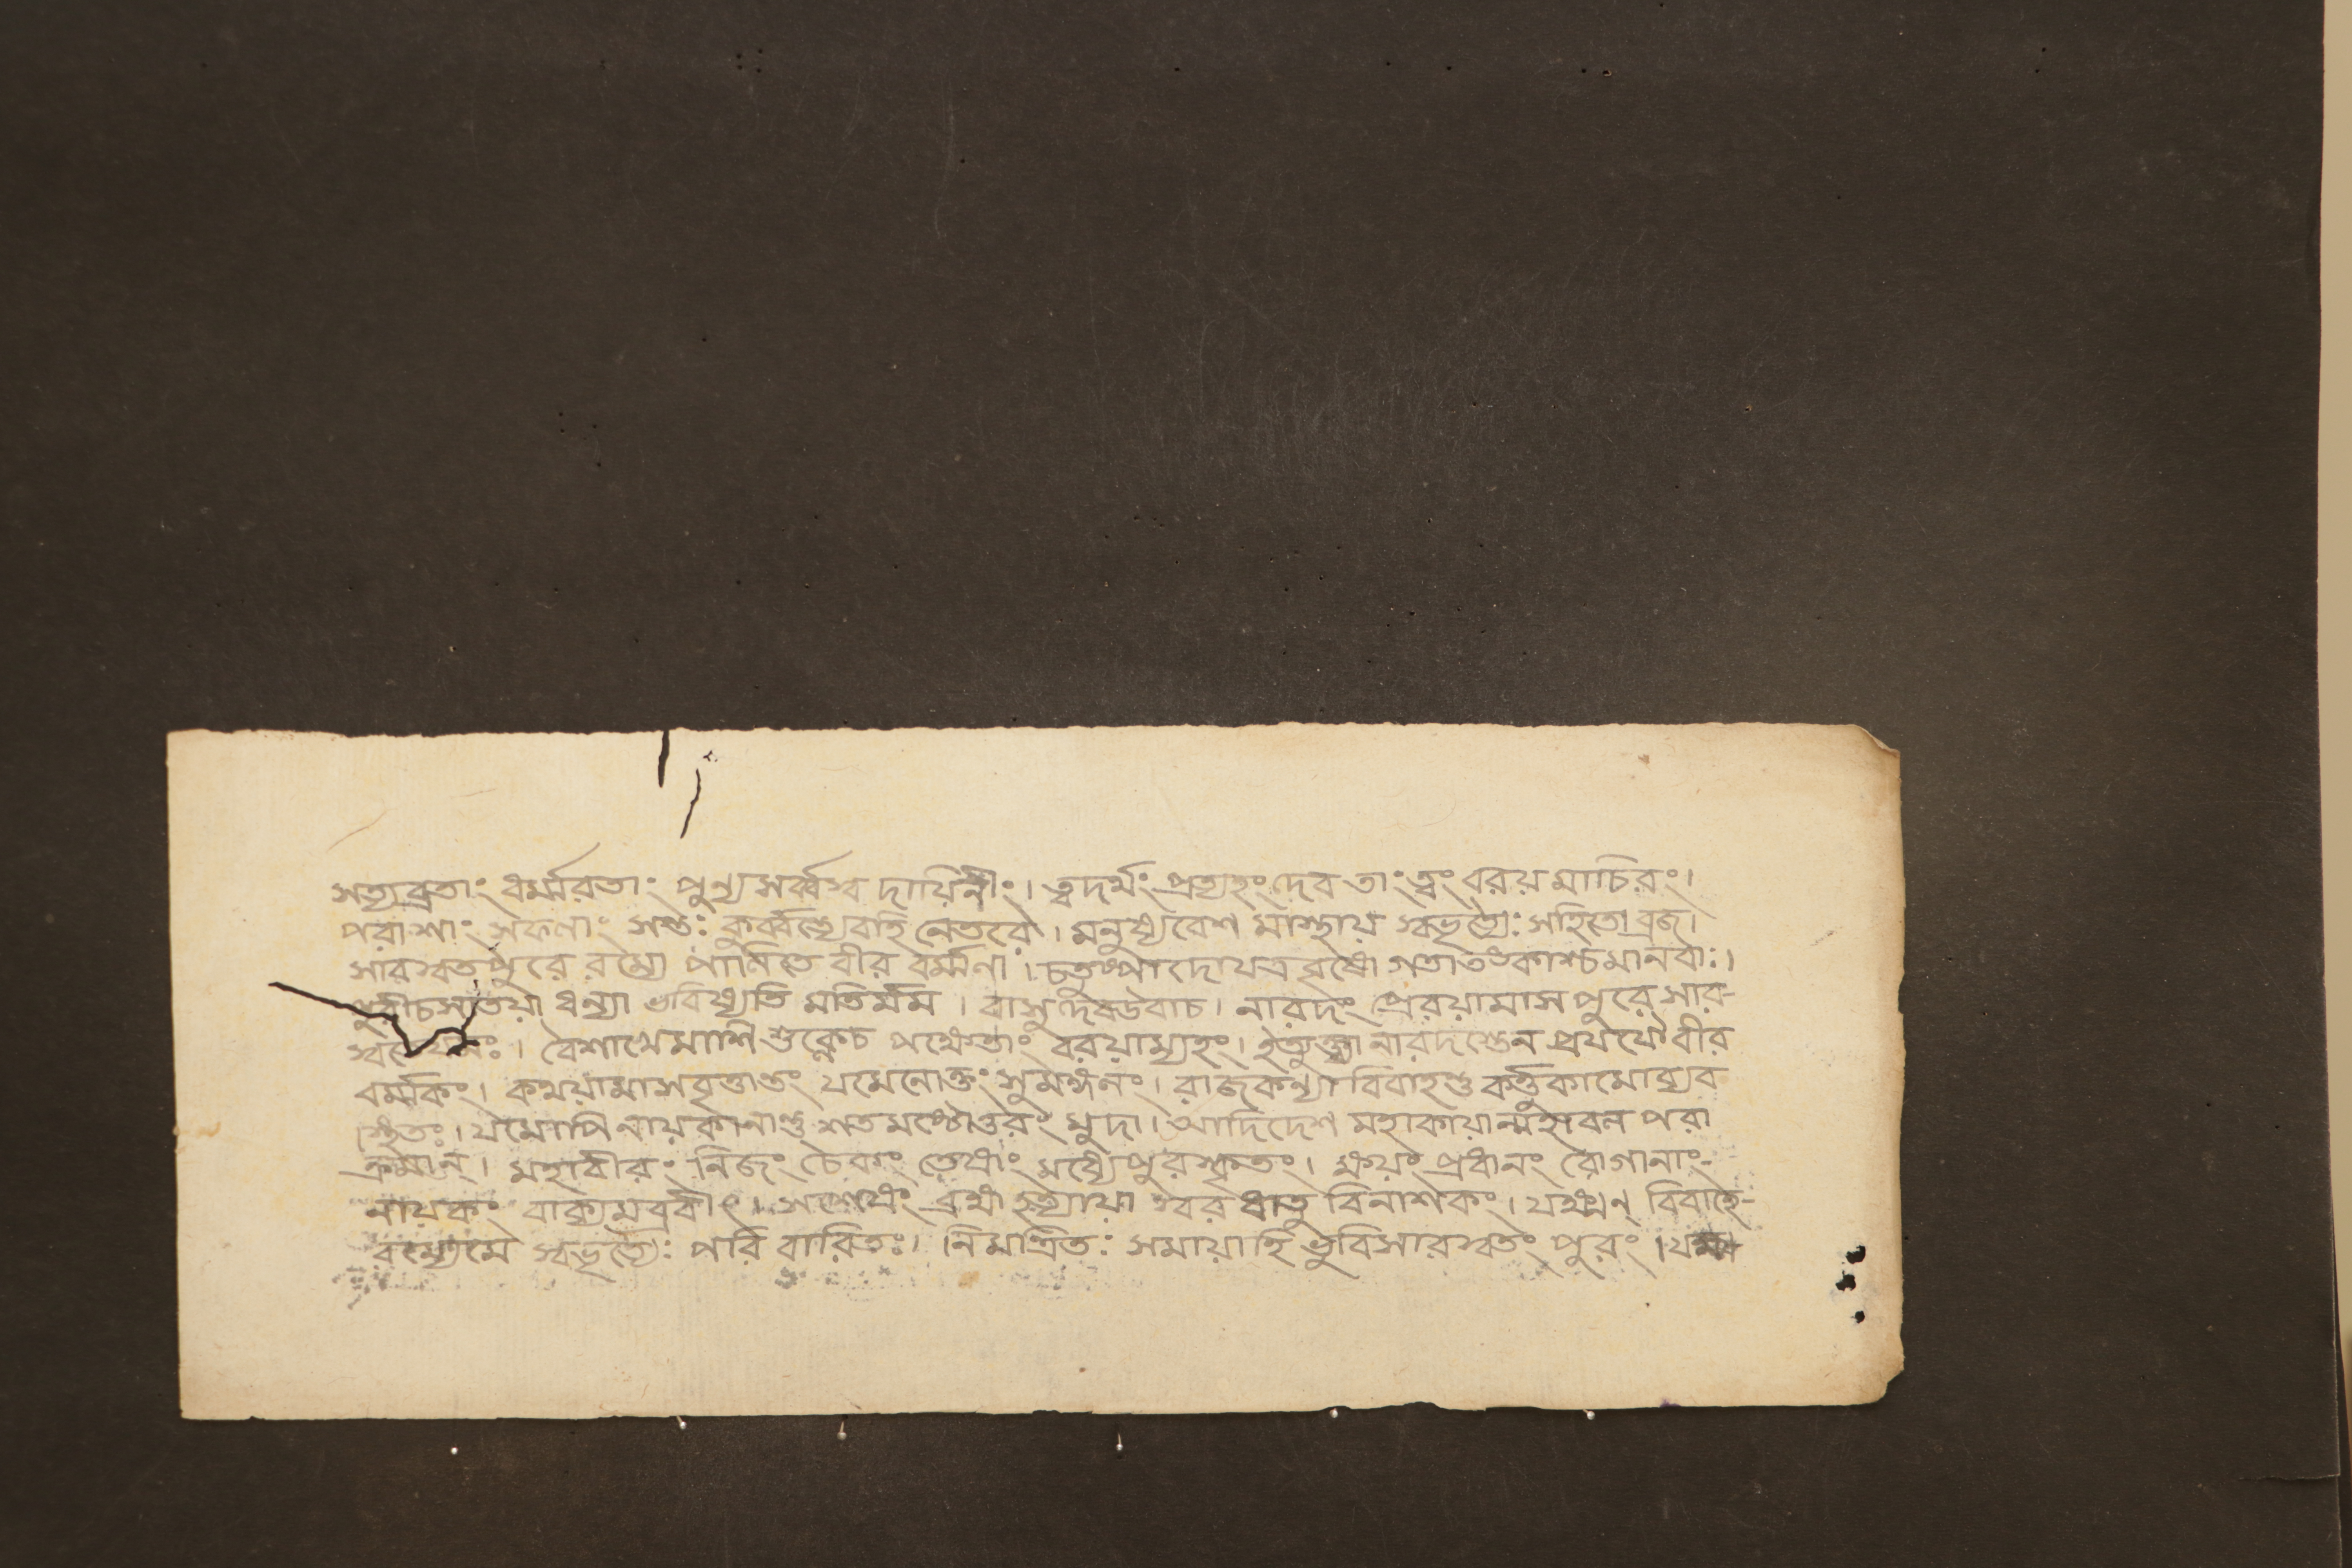 সত্যব্রতাং ধর্ম্মরতাং পুন্যসর্ব্বস্ব দায়িনীং। ত্বদর্থং প্রত্যহং দেব তাং ত্বং বরয় মাচিরং।
পরাশাং সফলাং সন্তঃ কুর্ব্বন্ত্যেবহি নেতরে। মনুষ্যবেশ মাস্থায় স্বভৃত্যৈঃ সহিতো ব্রজ।
সারস্বত পুরে রম্যে পালিতে বীর বর্ম্মণা। চতুষ্পাদোযত্রবৃষো গতাতঙ্কাশ্চমানবাঃ।
পুরীচসাতয়া ধন্যা ভবিষ্যতি মতির্মম। বাসুদেবউবাচ। নারদং প্রেরয়ামাস পুরে সার-
স্বতে যমঃ। বৈশাখেমাসি শুক্লেচ পক্ষেতাং বরয়াম্যহং। ইত্যুক্ত্বা নারদস্তেন প্রযযৌ বীর
বর্ম্মকং। কথয়ামাসবৃত্তান্তং যমেনোক্তং সুমঙ্গলং। রাজকন্যা বিবাহন্তু কর্ত্তুকামোব্যব
স্থিতঃ। যমোপি নায়কানান্তু শতমষ্টোত্তরং মুদা। আদিদেশ মহাকায়ান্মহাবল পরা
ক্রমান্। মহাবীরং নিজং চৈকং তেষাং মধ্যেপুরস্কৃতং। ক্ষয়ং প্রধানং রোগানাং-
নায়কং বাক্যমব্রবীৎ। ধাতু বিনাশকং। যক্ষ্মন্ বিবাহে-
স্বভৃত্যৈঃ পরি বারিতঃ। নিমন্ত্রিতঃ সমায়াহি ভুবিসারস্বতং পুরং।